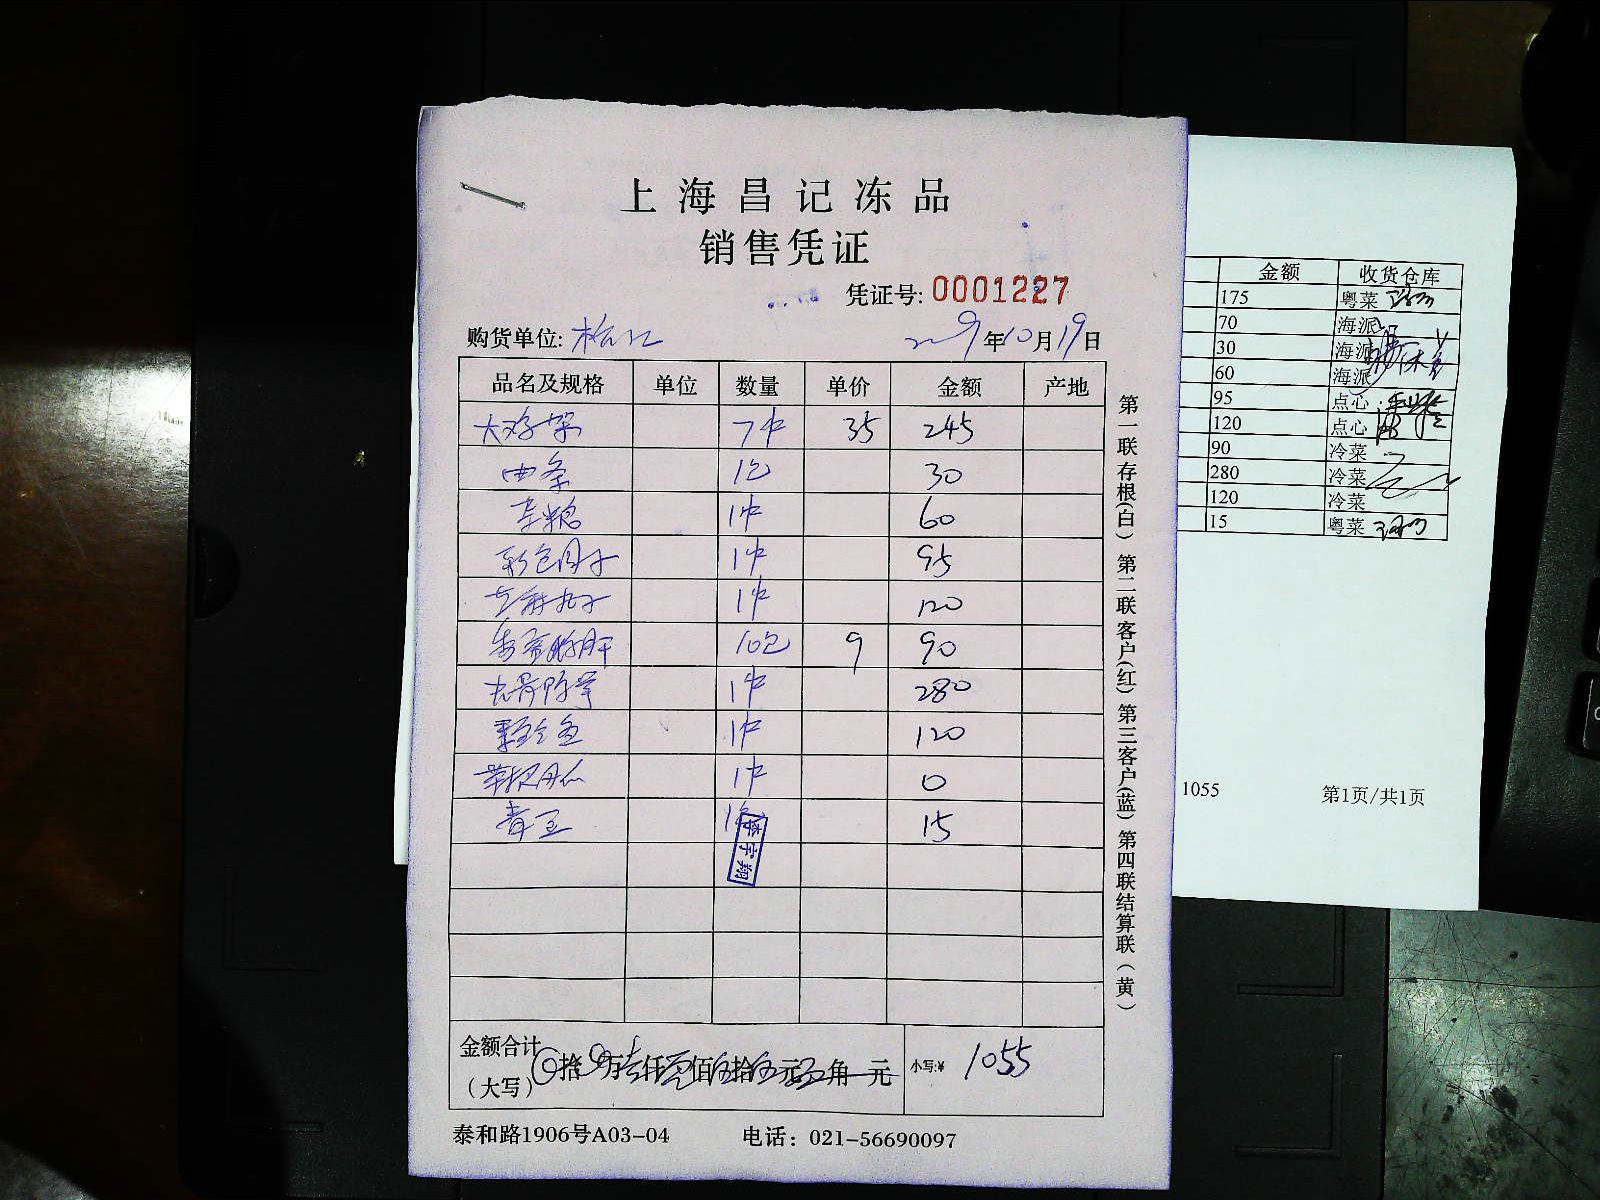 上海昌记冻品
销售凭证
凭证号: 0001227
购货单位: 松江 2019年10月19日
品名及规格 单位 数量 单价 金额 产地
大鸡架 7件 35 245
曲条 1包 30
1件 60
彩色圆子 1件 95
1件 120
10包 9 90
1件 280
1件 120
1件 0
青豆 15
徐宇翔
金额合计(大写) 拾 万壹仟零佰伍拾伍元 角 元 小写:¥ 1055
泰和路1906号A03-04 电话: 021-56690097
第一联存根(白) 第二联客户(红) 第三客户(蓝) 第四联结算联(黄)
金额 收货仓库
175 粤菜
70 海派
30 海派
60 海派
95 点心
120 点心
90 冷菜
280 冷菜
120 冷菜
15 粤菜
1055 第1页/共1页